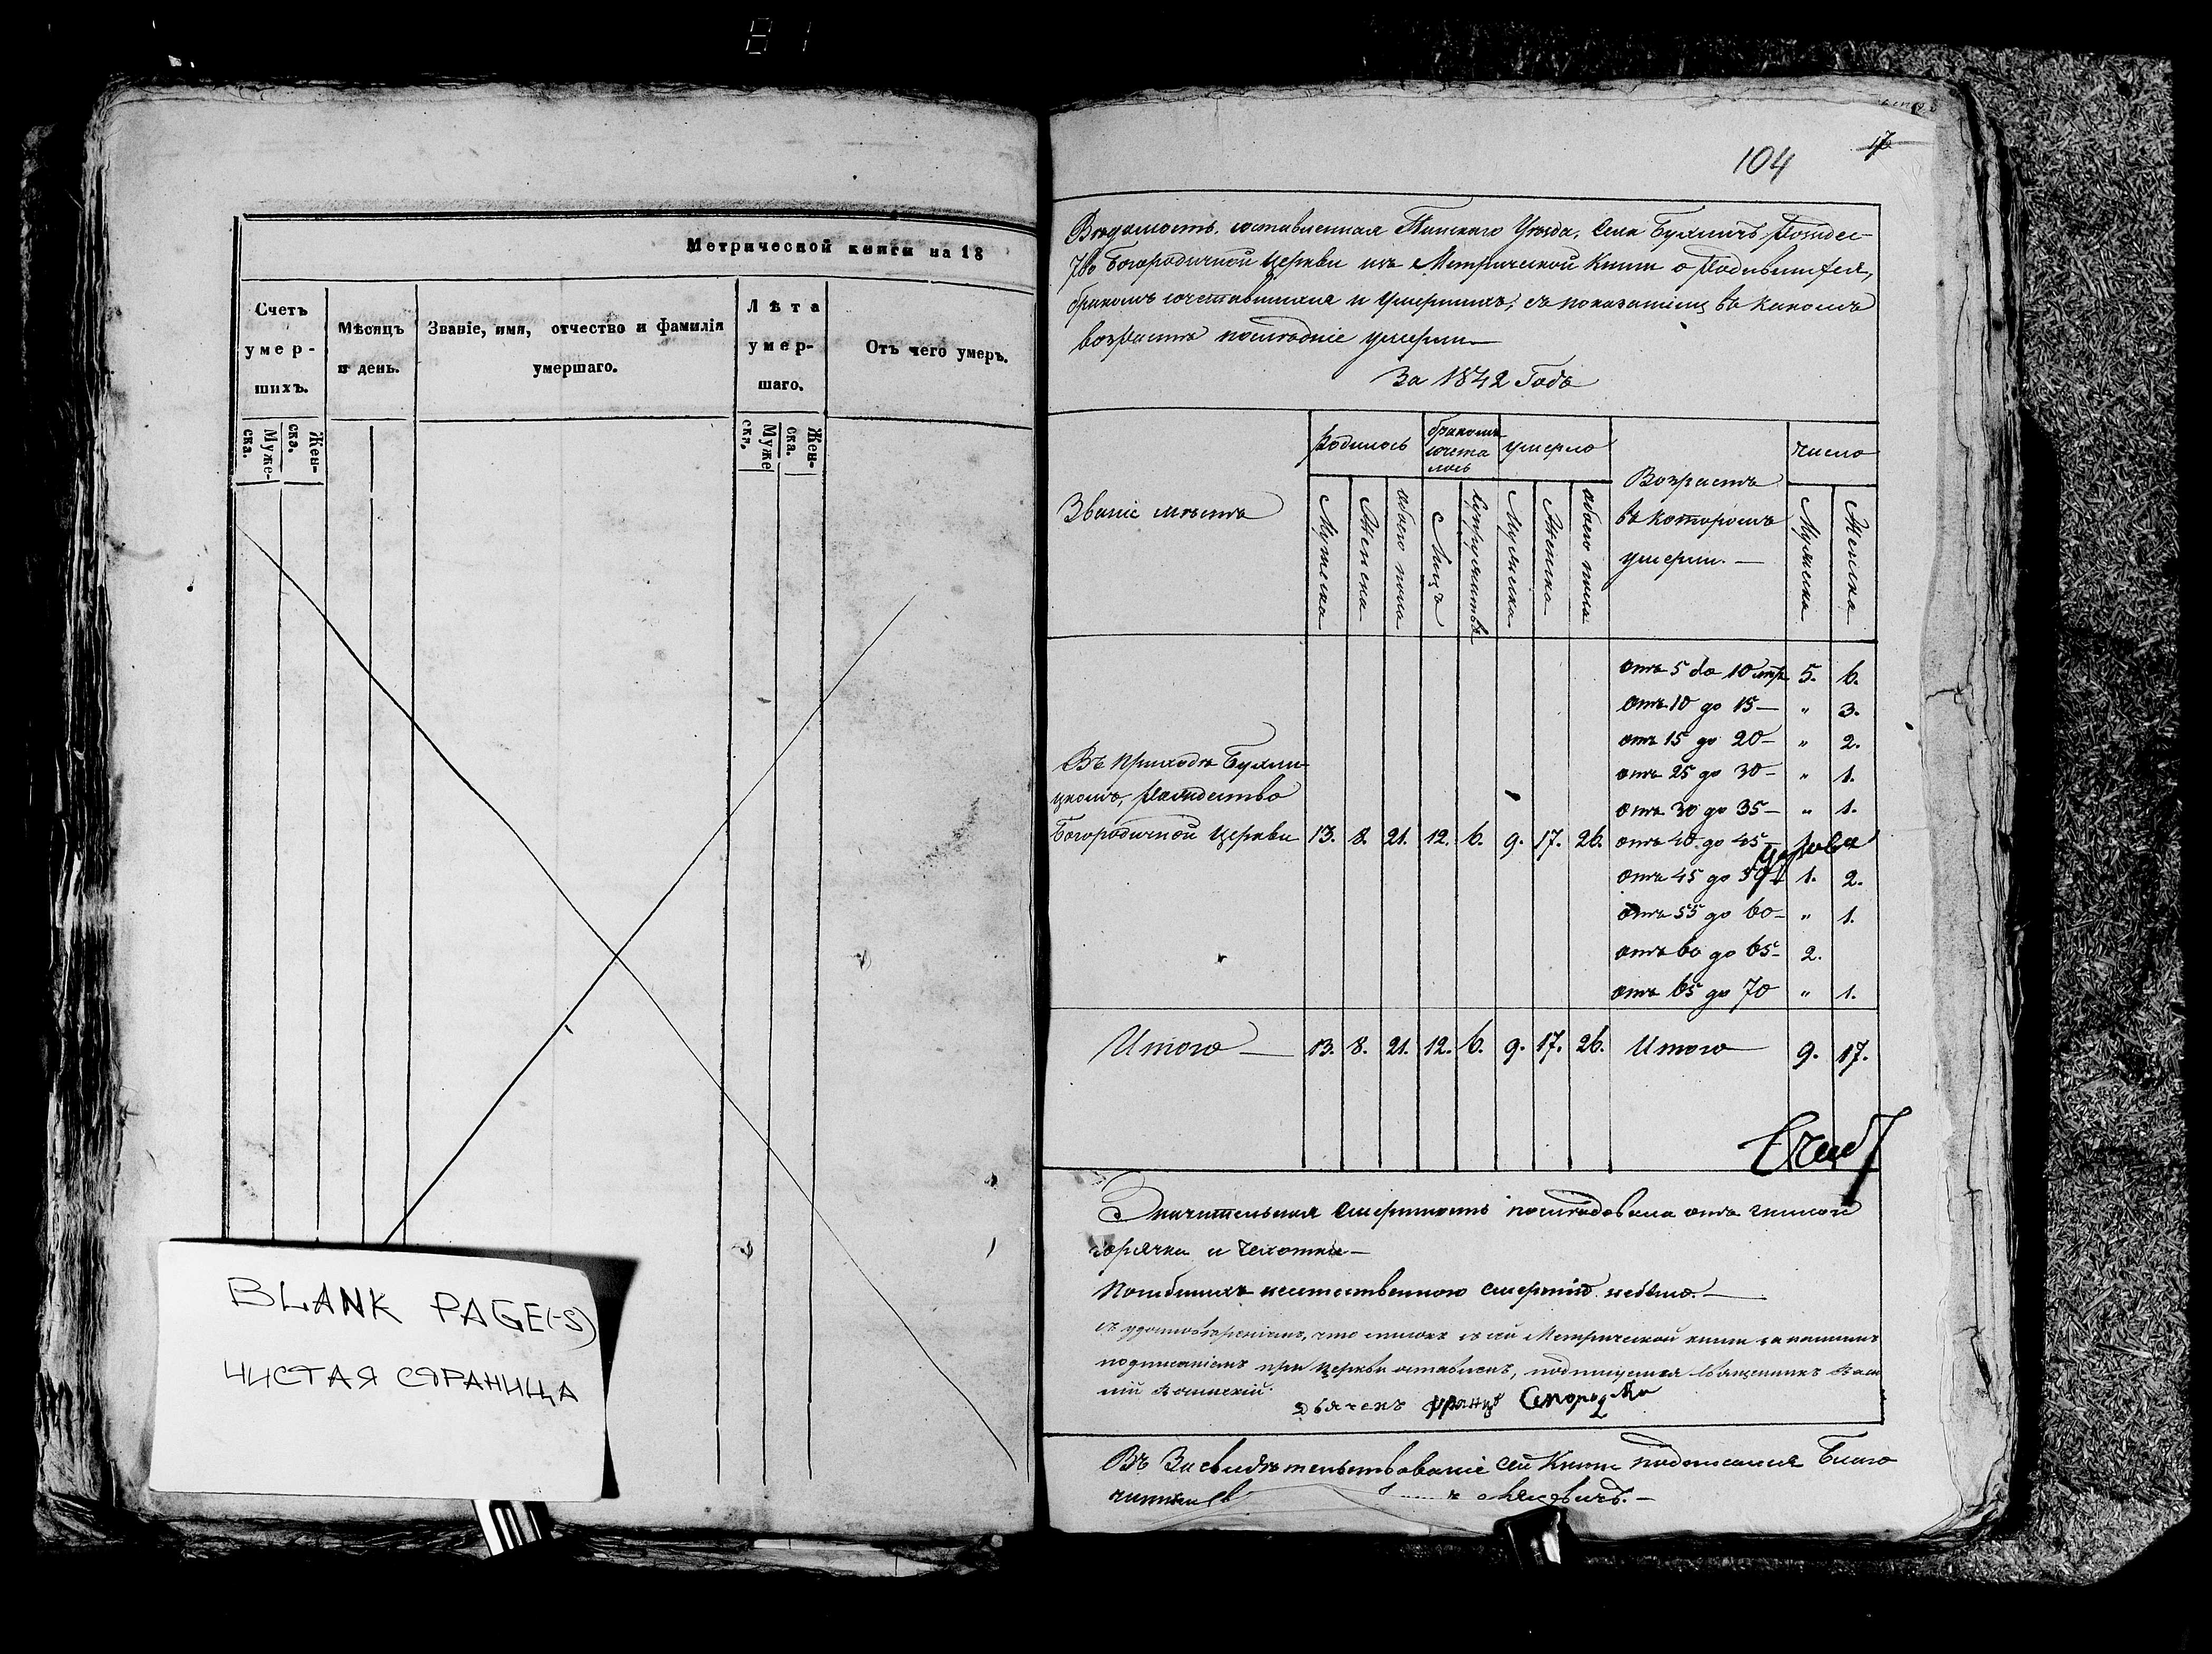 81
Метрической книги на 18
Счетъ умер-шихъ.
Мѣсяцъ и день.
Званіе, имя, отчество и фамилія умершаго.
Лѣта умер-шаго.
Отъ чего умеръ.
Муже-ска.
Жен-ска.
Муже ска.
Жен-ска.
BLANK PAGE(-S)
ЧИСТАЯ СТРАНИЦА
104
Вѣдомость, составленная Пинскаго Уѣзда, Села Рождес-
тво Богородичной Церкви изъ Метрической Книги о Родившихся,
бракомъ сочетавшихся и Умершихъ, съ показаніемъ въ какомъ
возрастѣ послѣдніе умерли—
За 1842 Годъ
Званіе мѣстъ
Родилось
бракомъ сочета лось
умерло
Возрастъ въ которомъ умерли.—
число
Мужеска
Женска
обоего пола
Лицъ
Супружествъ
Мужеска
Женска
обоего пола
Мужеска
Женска
отъ 5 до 10 лѣтъ 5. 6.
отъ 10 до 15— " 3.
отъ 15 до 20— " 2.
отъ 25 до 30— " 1.
отъ 30 до 35— " 1.
Въ приходѣ
Рождество
Богородичной Церкви 13. 8. 21. 12. 6. 9. 17. 26. отъ 40 до 45—
отъ 45 до 50 1. 2.
отъ 55 до 60— " 1.
отъ 60 до 65— 2.
отъ 65 до 70 " 1.
Итого— 13. 8. 21. 12. 6. 9. 17. 26. Итого— 9. 17.
Значительная смертность послѣдовала отъ гнилой
горячки и чахотки—
Погибшихъ неестественною смертію небыло.—
съ удостовѣреніемъ, что списокъ сей Метрической книги за нашимъ
подписаніемъ при Церкви оставленъ, подписуемся Священникъ
Дьячекъ
Въ Засвидѣтельствованіе сей Книги подписался Благо